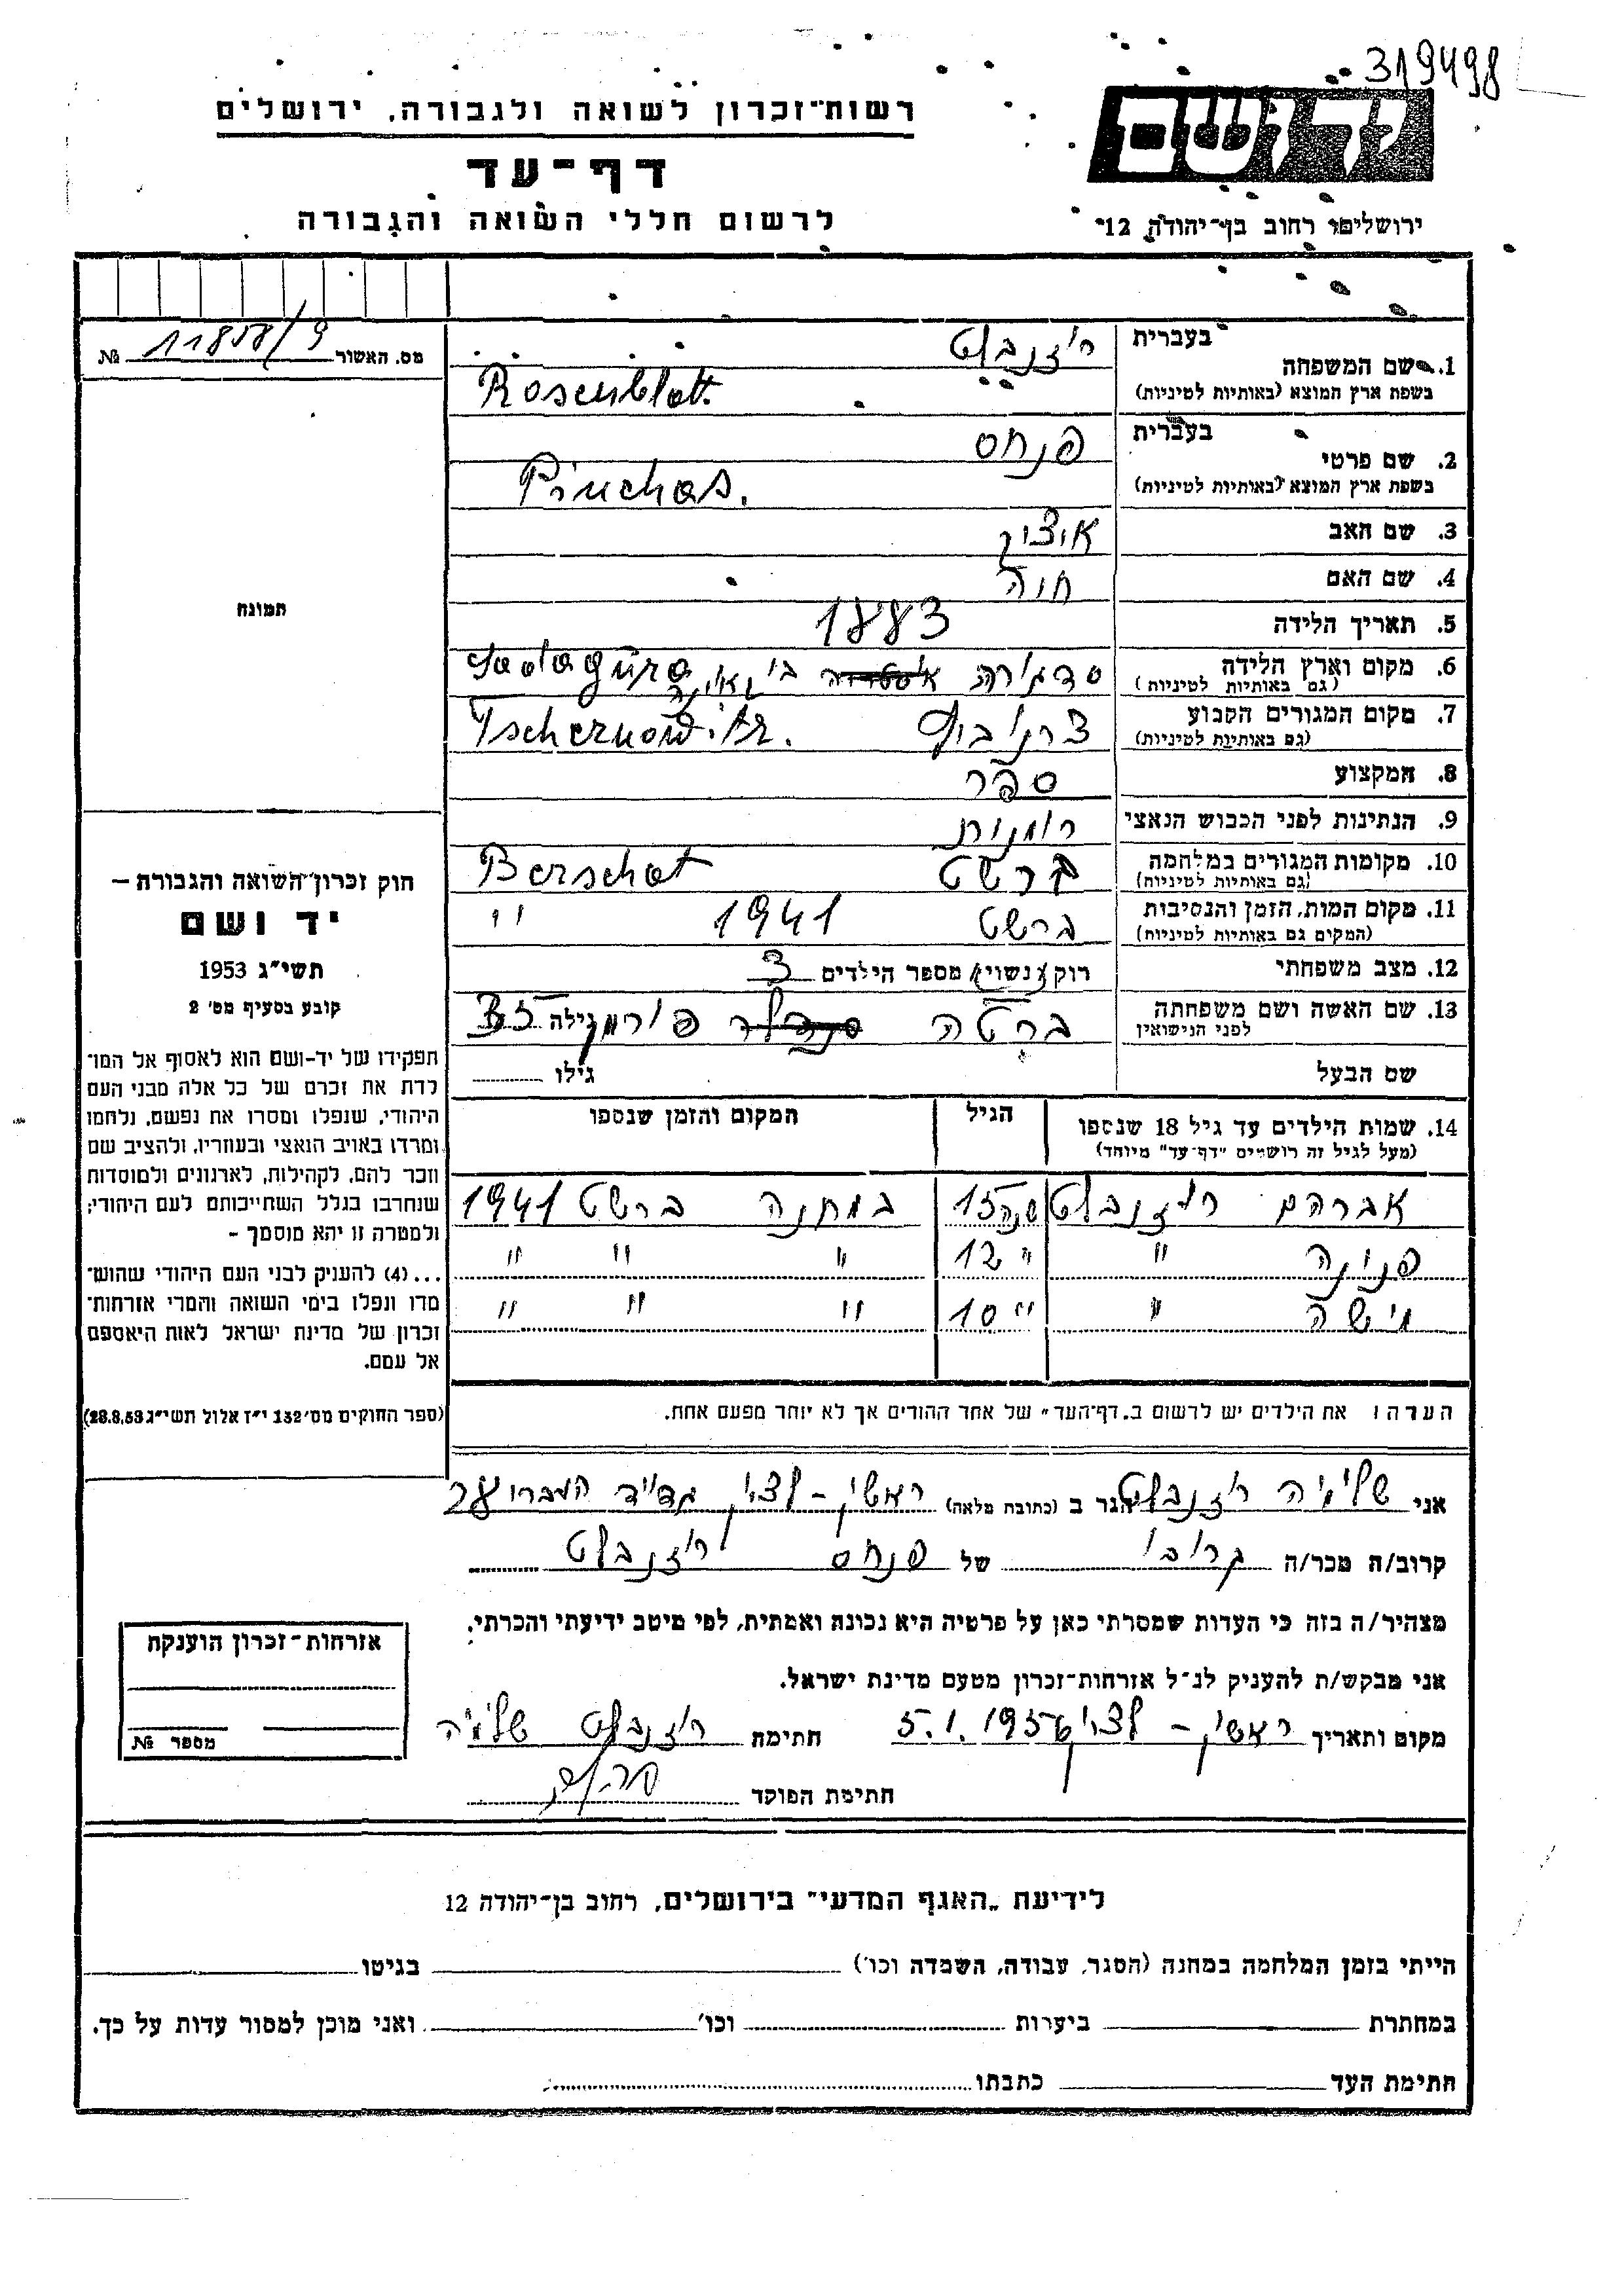 319498
רשות־זכרון לשואה ולגבורה, ירושלים
יד ושם
דף־עד
לרשום חללי השואה והגבורה
ירושלים, רחוב בן־יהודה 12
מס. האשור № 11858/9
1. שם המשפחה
בעברית רוזנבלט
בשפת ארץ המוצא (באותיות לטיניות) Rosenblatt.
2. שם פרטי
בעברית פנחס
בשפת ארץ המוצא (באותיות לטיניות) Pinchas.
3. שם האב איציק
4. שם האם חוה
5. תאריך הלידה 1883
6. מקום וארץ הלידה סדגורה Sadagura
(גם באותיות לטיניות)
7. מקום המגורים הקבוע
(גם באותיות לטיניות)
8. המקצוע ספר
9. הנתינות לפני הכבוש הנאצי רומנית
10. מקומות המגורים במלחמה ברשט Berschat
(גם באותיות לטיניות)
11. מקום המות, הזמן והנסיבות ברשט 1941 "
(המקום גם באותיות לטיניות)
12. מצב משפחתי רוק/נשוי/ מספר הילדים 3
13. שם האשה ושם משפחתה ברטה פורמן גילה 35
לפני הנישואין
שם הבעל גילו
14. שמות הילדים עד גיל 18 שנספו הגיל המקום והזמן שנספו
(מעל לגיל זה רושמים "דף־עד" מיוחד)
אברהם רוזנבלט 15 שנה במחנה ברשט 1941
פנינה " 12 " " " "
מישה " 10 " " " "
הערה: את הילדים יש לרשום ב„דף־העד" של אחד ההורים אך לא יותר מפעם אחת.
תמונה
חוק זכרון־השואה והגבורה –
יד ושם
תשי"ג 1953
קובע בסעיף מס' 2
תפקידו של יד־ושם הוא לאסוף אל המו־
לדת את זכרם של כל אלה מבני העם
היהודי, שנפלו ומסרו את נפשם, נלחמו
ומרדו באויב הנאצי ובעוזריו, ולהציב שם
וזכר להם, לקהילות, לארגונים ולמוסדות
שנחרבו בגלל השתייכותם לעם היהודי;
ולמטרה זו יהא מוסמך –
...(4) להעניק לבני העם היהודי שהוש־
מדו ונפלו בימי השואה והמרי אזרחות־
זכרון של מדינת ישראל לאות היאספם
אל עמם.
(ספר החוקים מס' 132 י"ז אלול תשי"ג 28.8.53)
אני שלמה רוזנבלט הגר ב (כתובת מלאה) ראשון – לציון
קרוב/ה מכר/ה קרובו של פנחס רוזנבלט
מצהיר/ה בזה כי העדות שמסרתי כאן על פרטיה היא נכונה ואמתית, לפי מיטב ידיעתי והכרתי.
אני מבקש/ת להעניק לנ"ל אזרחות־זכרון מטעם מדינת ישראל.
מקום ותאריך ראשון – לציון 5.1.1956 חתימה רוזנבלט שלמה
חתימת הפוקד
אזרחות־זכרון הוענקה
מספר №
לידיעת „האגף המדעי" בירושלים, רחוב בן־יהודה 12
הייתי בזמן המלחמה במחנה (הסגר, עבודה, השמדה וכו') בגיטו
במחתרת ביערות וכו' ואני מוכן למסור עדות על כך.
חתימת העד כתבתו